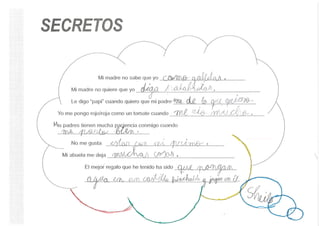 SECRETOS
Mi madre no sabe que yo como galletas.
Mi madre no quiere que yo diga palabrotas.
Le digo "papi" cuando quiero que mi padre me de lo que quiero.
Yo me pongo rojo/roja como un tomate cuando me río mucho.
Mis padres tienen mucha paciencia conmigo cuando
me porto bien.
No me gusta estar con mi primo.
Mi abuela me deja muchas cosas.
El mejor regalo que he tenido ha sido que pongan
agua en un castillo hinchable y jugar en él.
Sheila